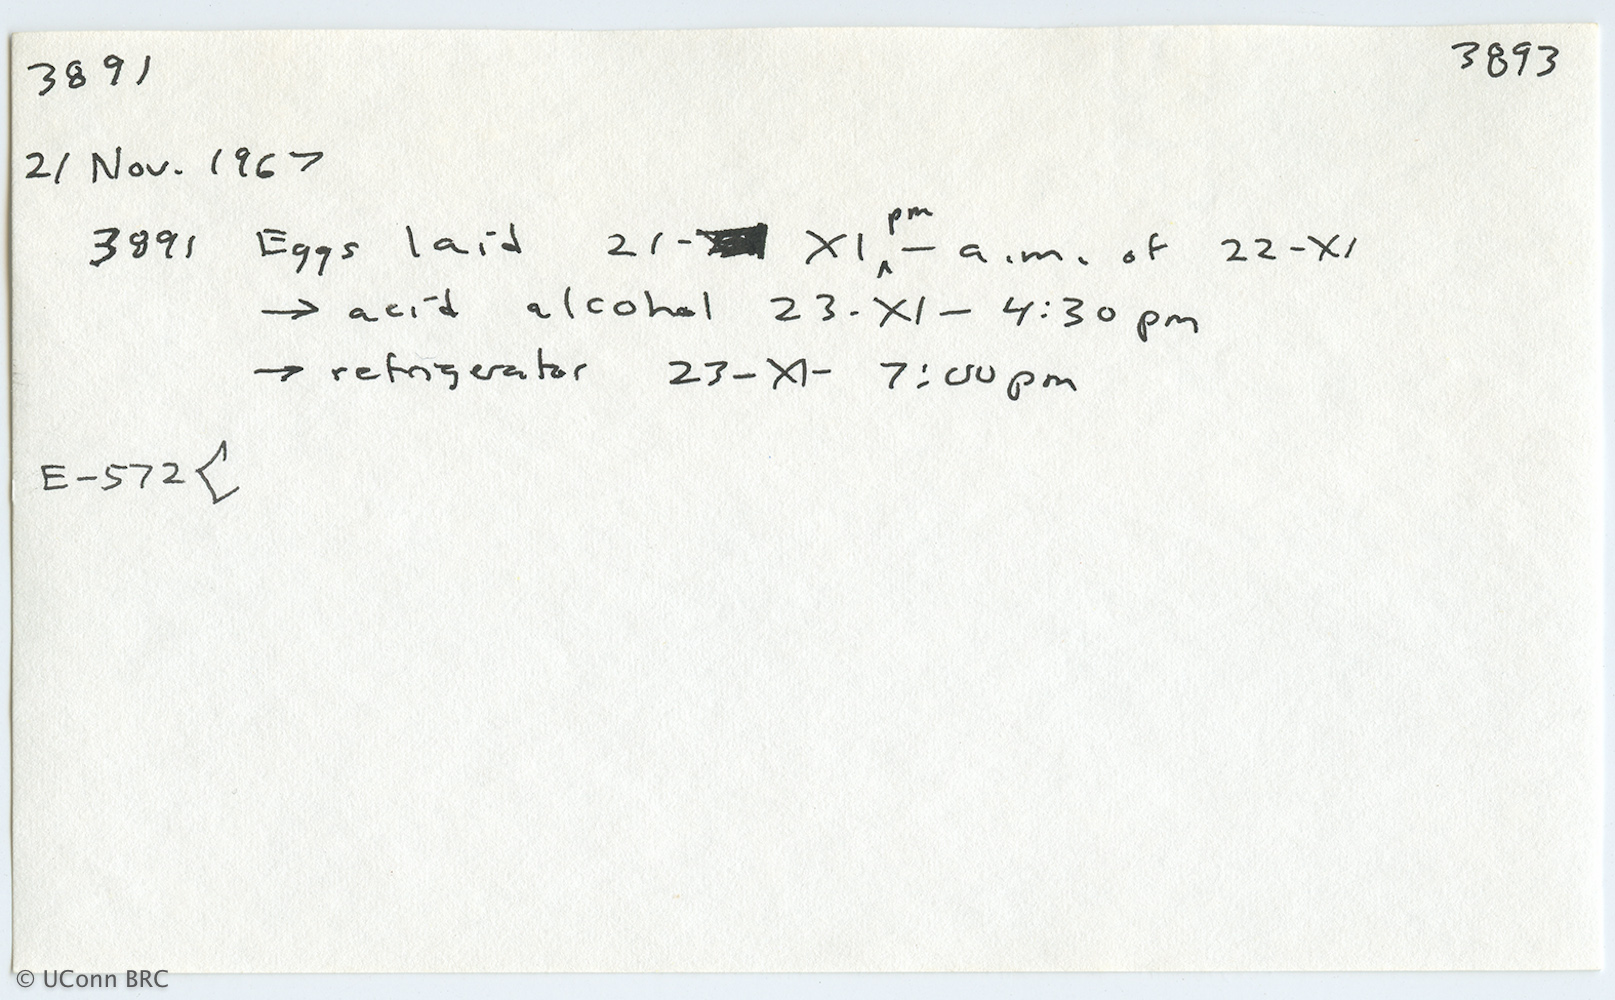 3891 3893
21 Nov. 1967
3891 Eggs laid 21- XI pm - a.m. of 22-XI
→ acid alcohol 23-XI - 4:30 pm
→ refrigerator 23-XI- 7:00 pm
E-572 <
© UConn BRC